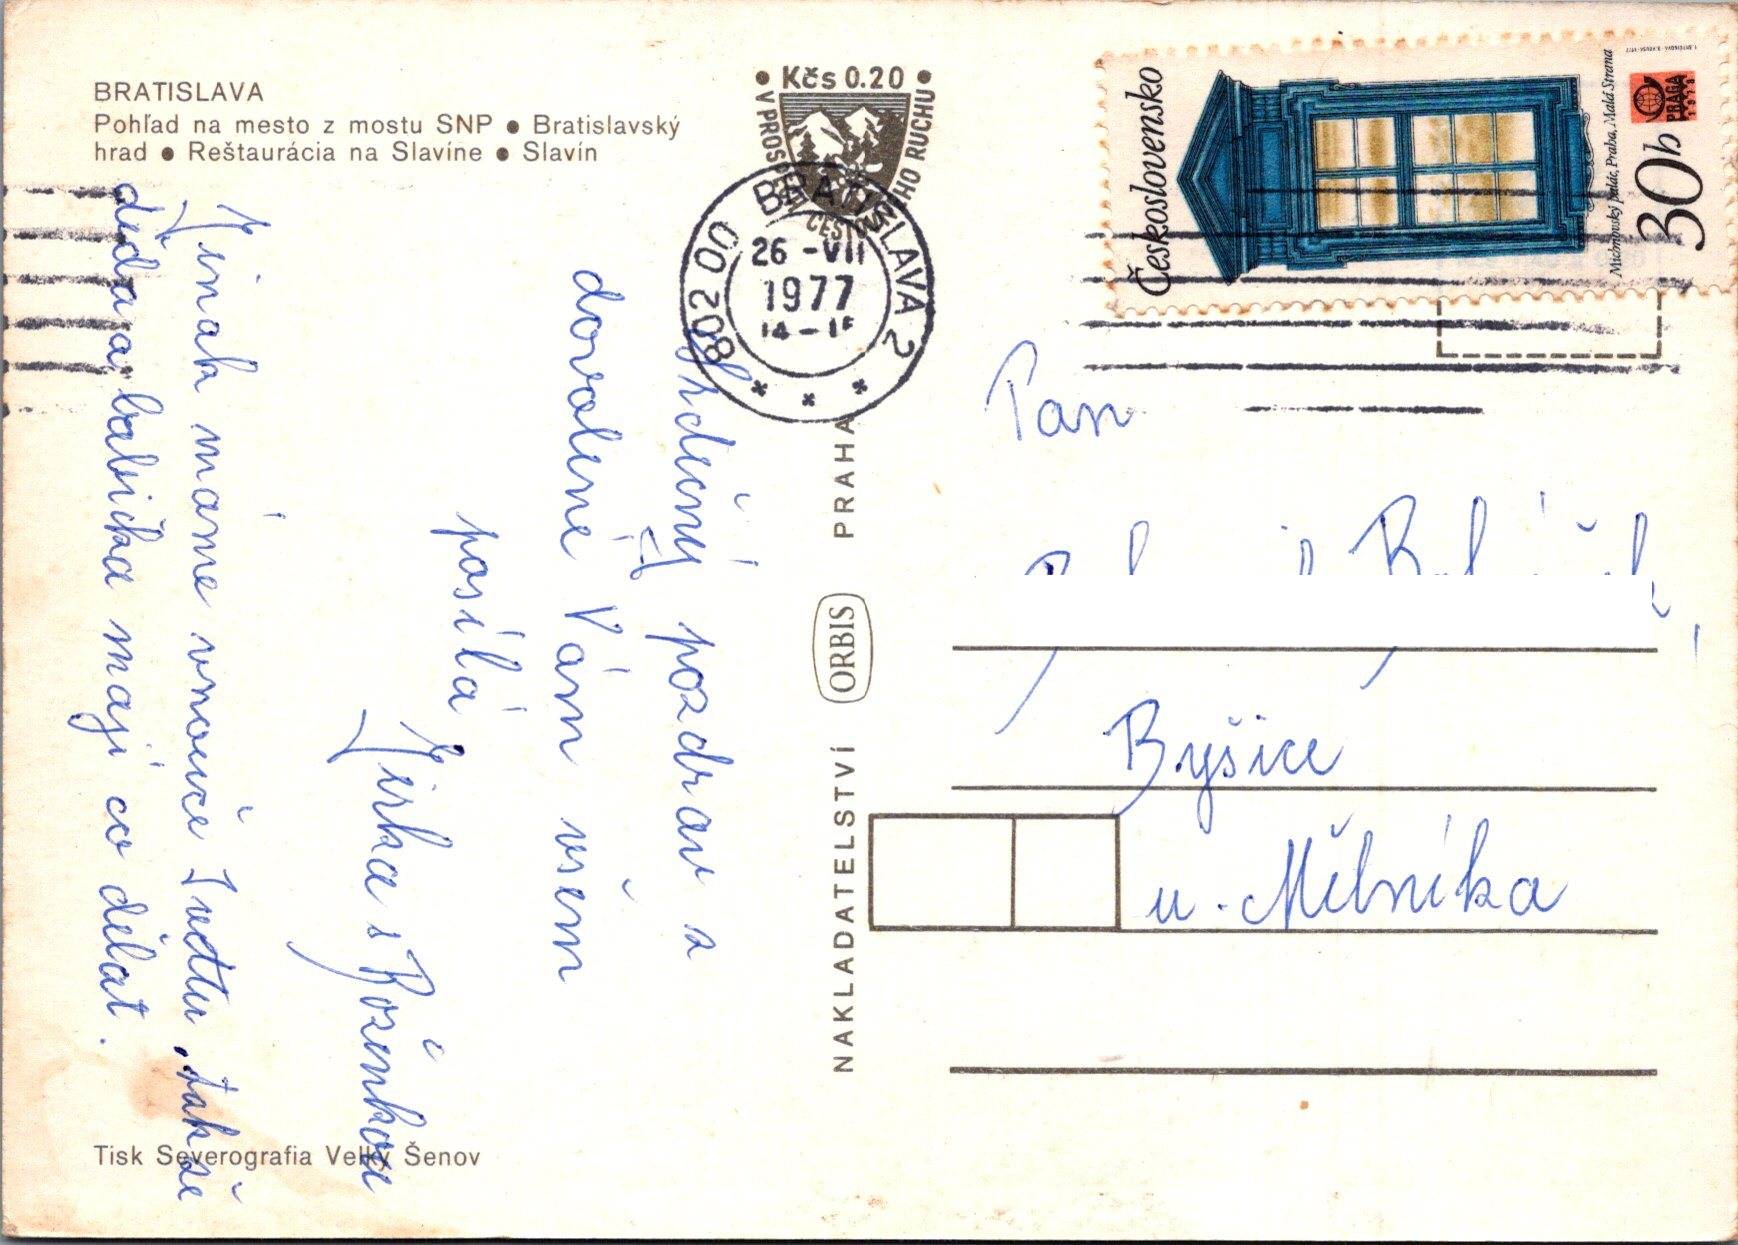 BRATISLAVA
Pohľad na mesto z mostu SNP ● Bratislavský
hrad ● Reštaurácia na Slavíne ● Slavín
Kčs 0.20
802 00 BRATISLAVA 2
26 -VII
1977
14 -
Československo
Michnovský palác, Praha, Malá Strana
30h
PRAGA
1978
Srdečný pozdrav z
dovolené Vám všem
posílá
Jirka s Boženkou
Jinak máme vnouče Iveťu, takže
děda a babička mají co dělat.
NAKLADATELSTVÍ ORBIS PRAHA
Pan
Byšice
u. Mělníka
Tisk Severografia Velký Šenov